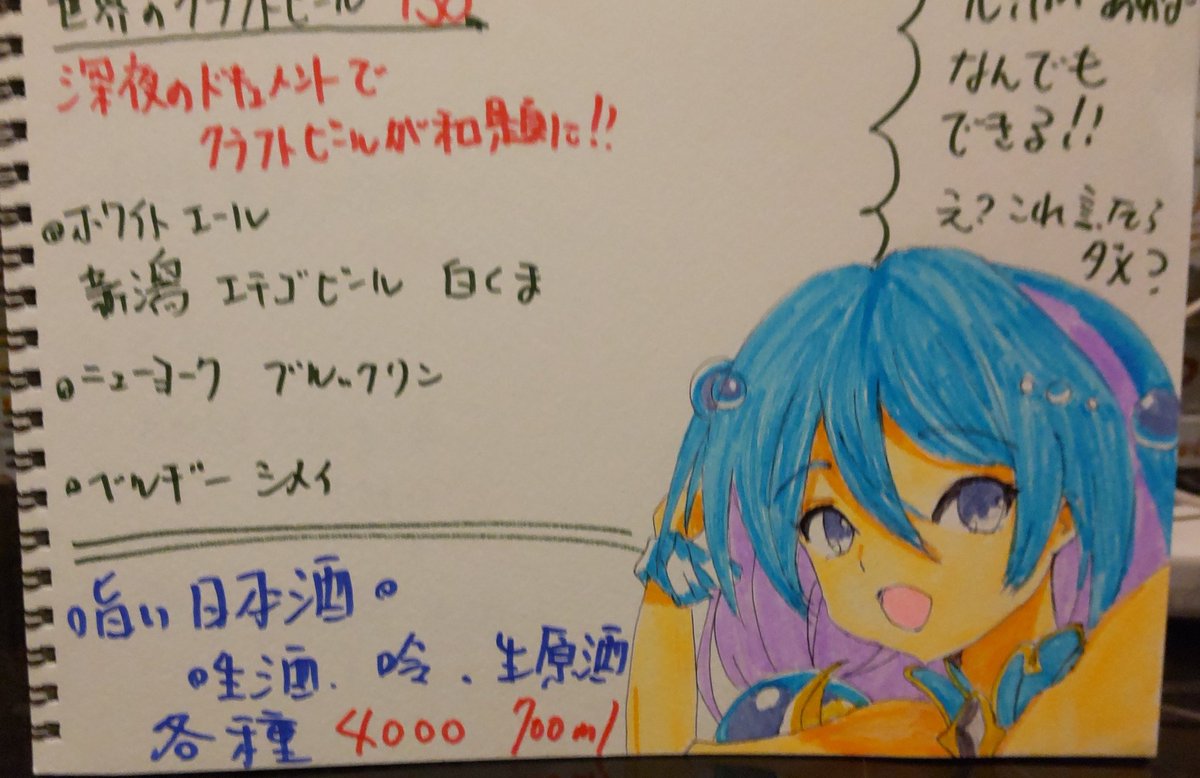 世界のクラフトビール 750
深夜のドキュメントで
クラフトビールが和題に!!
ホワイト エール
新潟 エチゴビール 白くま
ニューヨーク ブルックリン
ベルギー シメイ
旨い日本酒
生酒、吟、生原酒
各種 4000 700ml
あれば
なんでも
できる!!
え?これ言たら
ダメ?